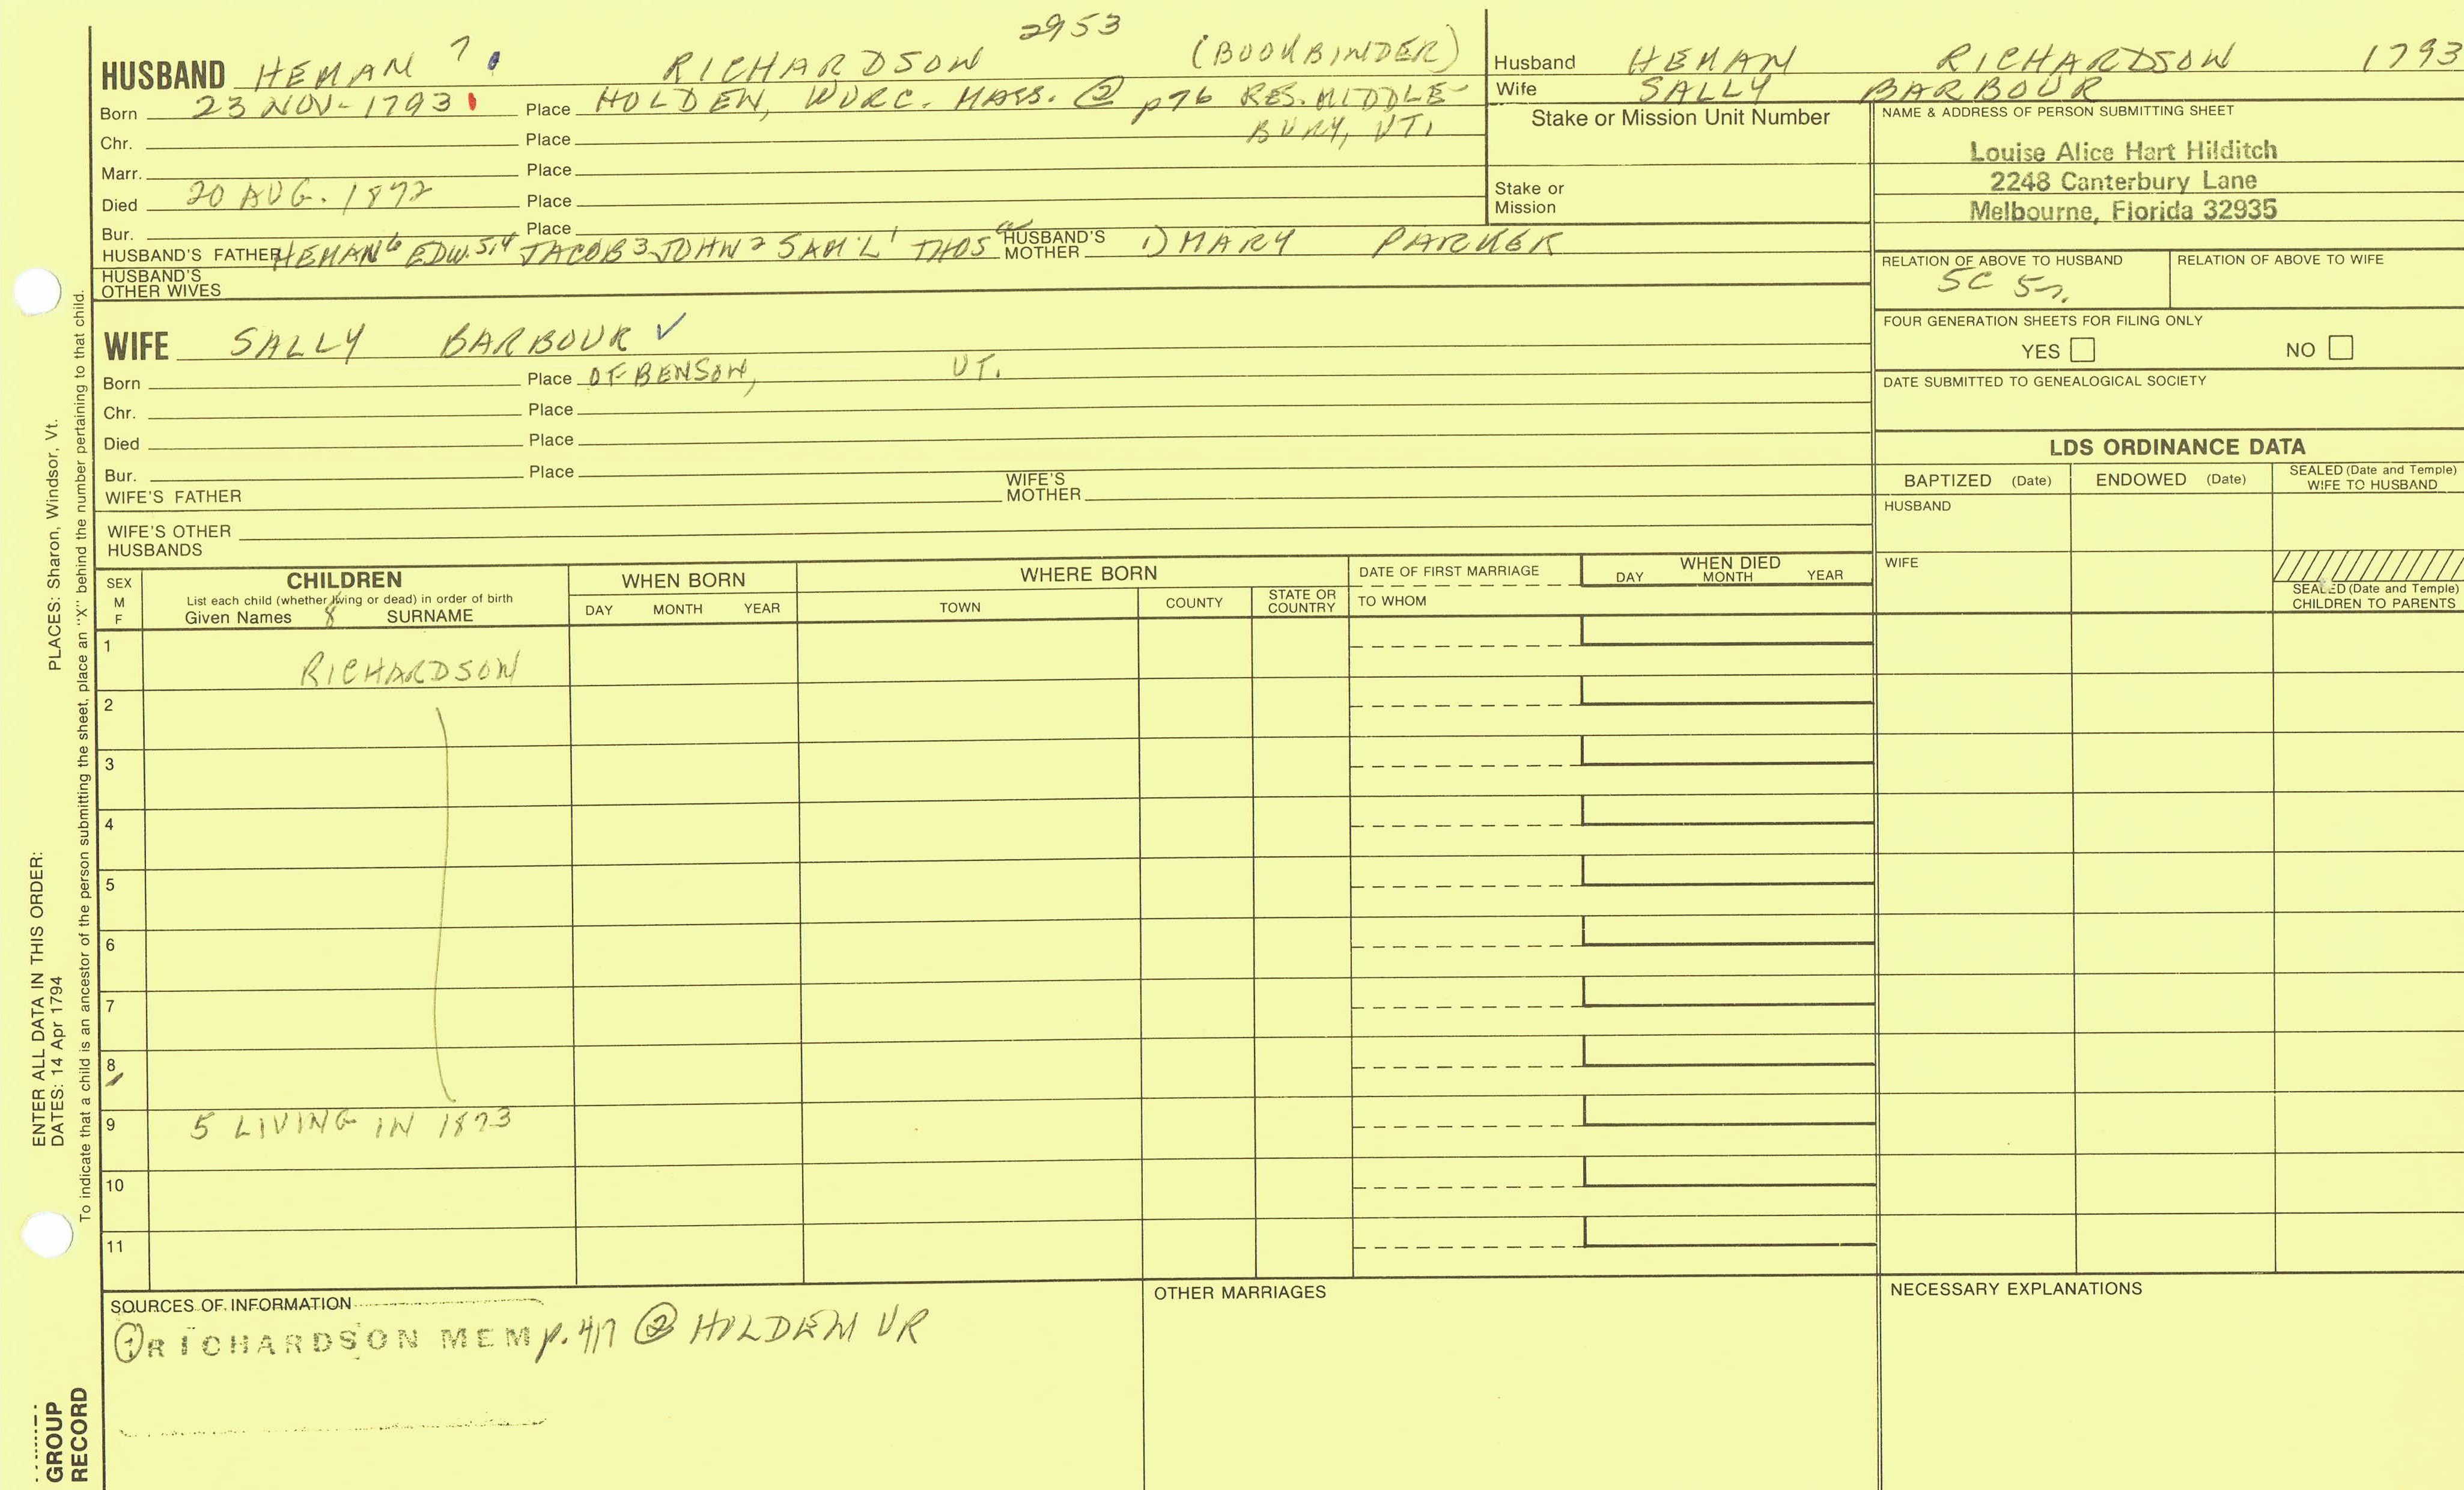 2953
HUSBAND HEMAN 7 RICHARDSON (BOOKBINDER)
Born 23 NOV- 1793 Place HOLDEN, WORC. MASS. ② p76 RES. MIDDLE-
BURY, VT.
Chr. Place
Marr. Place
Died 20 AUG. 1872 Place
Bur. Place
HUSBAND'S FATHER HEMAN 6 EDW. 5,4 JACOB 3 JOHN 2 SAM'L 1 THOS HUSBAND'S MOTHER 1) MARY PARKER
HUSBAND'S OTHER WIVES
WIFE SALLY BARBOUR ✓
Born Place OF BENSON, VT.
Chr. Place
Died Place
Bur. Place
WIFE'S FATHER WIFE'S MOTHER
WIFE'S OTHER HUSBANDS
Husband HEMAN RICHARDSON 1793
Wife SALLY BARBOUR
Stake or Mission Unit Number
Stake or Mission
NAME & ADDRESS OF PERSON SUBMITTING SHEET
Louise Alice Hart Hilditch
2248 Canterbury Lane
Melbourne, Florida 32935
RELATION OF ABOVE TO HUSBAND RELATION OF ABOVE TO WIFE
5C
FOUR GENERATION SHEETS FOR FILING ONLY
YES NO
DATE SUBMITTED TO GENEALOGICAL SOCIETY
LDS ORDINANCE DATA
BAPTIZED (Date) ENDOWED (Date) SEALED (Date and Temple) WIFE TO HUSBAND
HUSBAND
WIFE
SEALED (Date and Temple) CHILDREN TO PARENTS
SEX M F
CHILDREN
List each child (whether living or dead) in order of birth
Given Names 8 SURNAME
WHEN BORN
DAY MONTH YEAR
WHERE BORN
TOWN COUNTY STATE OR COUNTRY
DATE OF FIRST MARRIAGE
TO WHOM
WHEN DIED
DAY MONTH YEAR
1 RICHARDSON
2
3
4
5
6
7
8
9 5 LIVING IN 1873
10
11
SOURCES OF INFORMATION
① RICHARDSON MEM p. 417 ② HOLDEN VR
OTHER MARRIAGES
NECESSARY EXPLANATIONS
PLACES: Sharon, Windsor, Vt.
ENTER ALL DATA IN THIS ORDER:
DATES: 14 Apr 1794
To indicate that a child is an ancestor of the person submitting the sheet, place an "X" behind the number pertaining to that child.
GROUP
RECORD